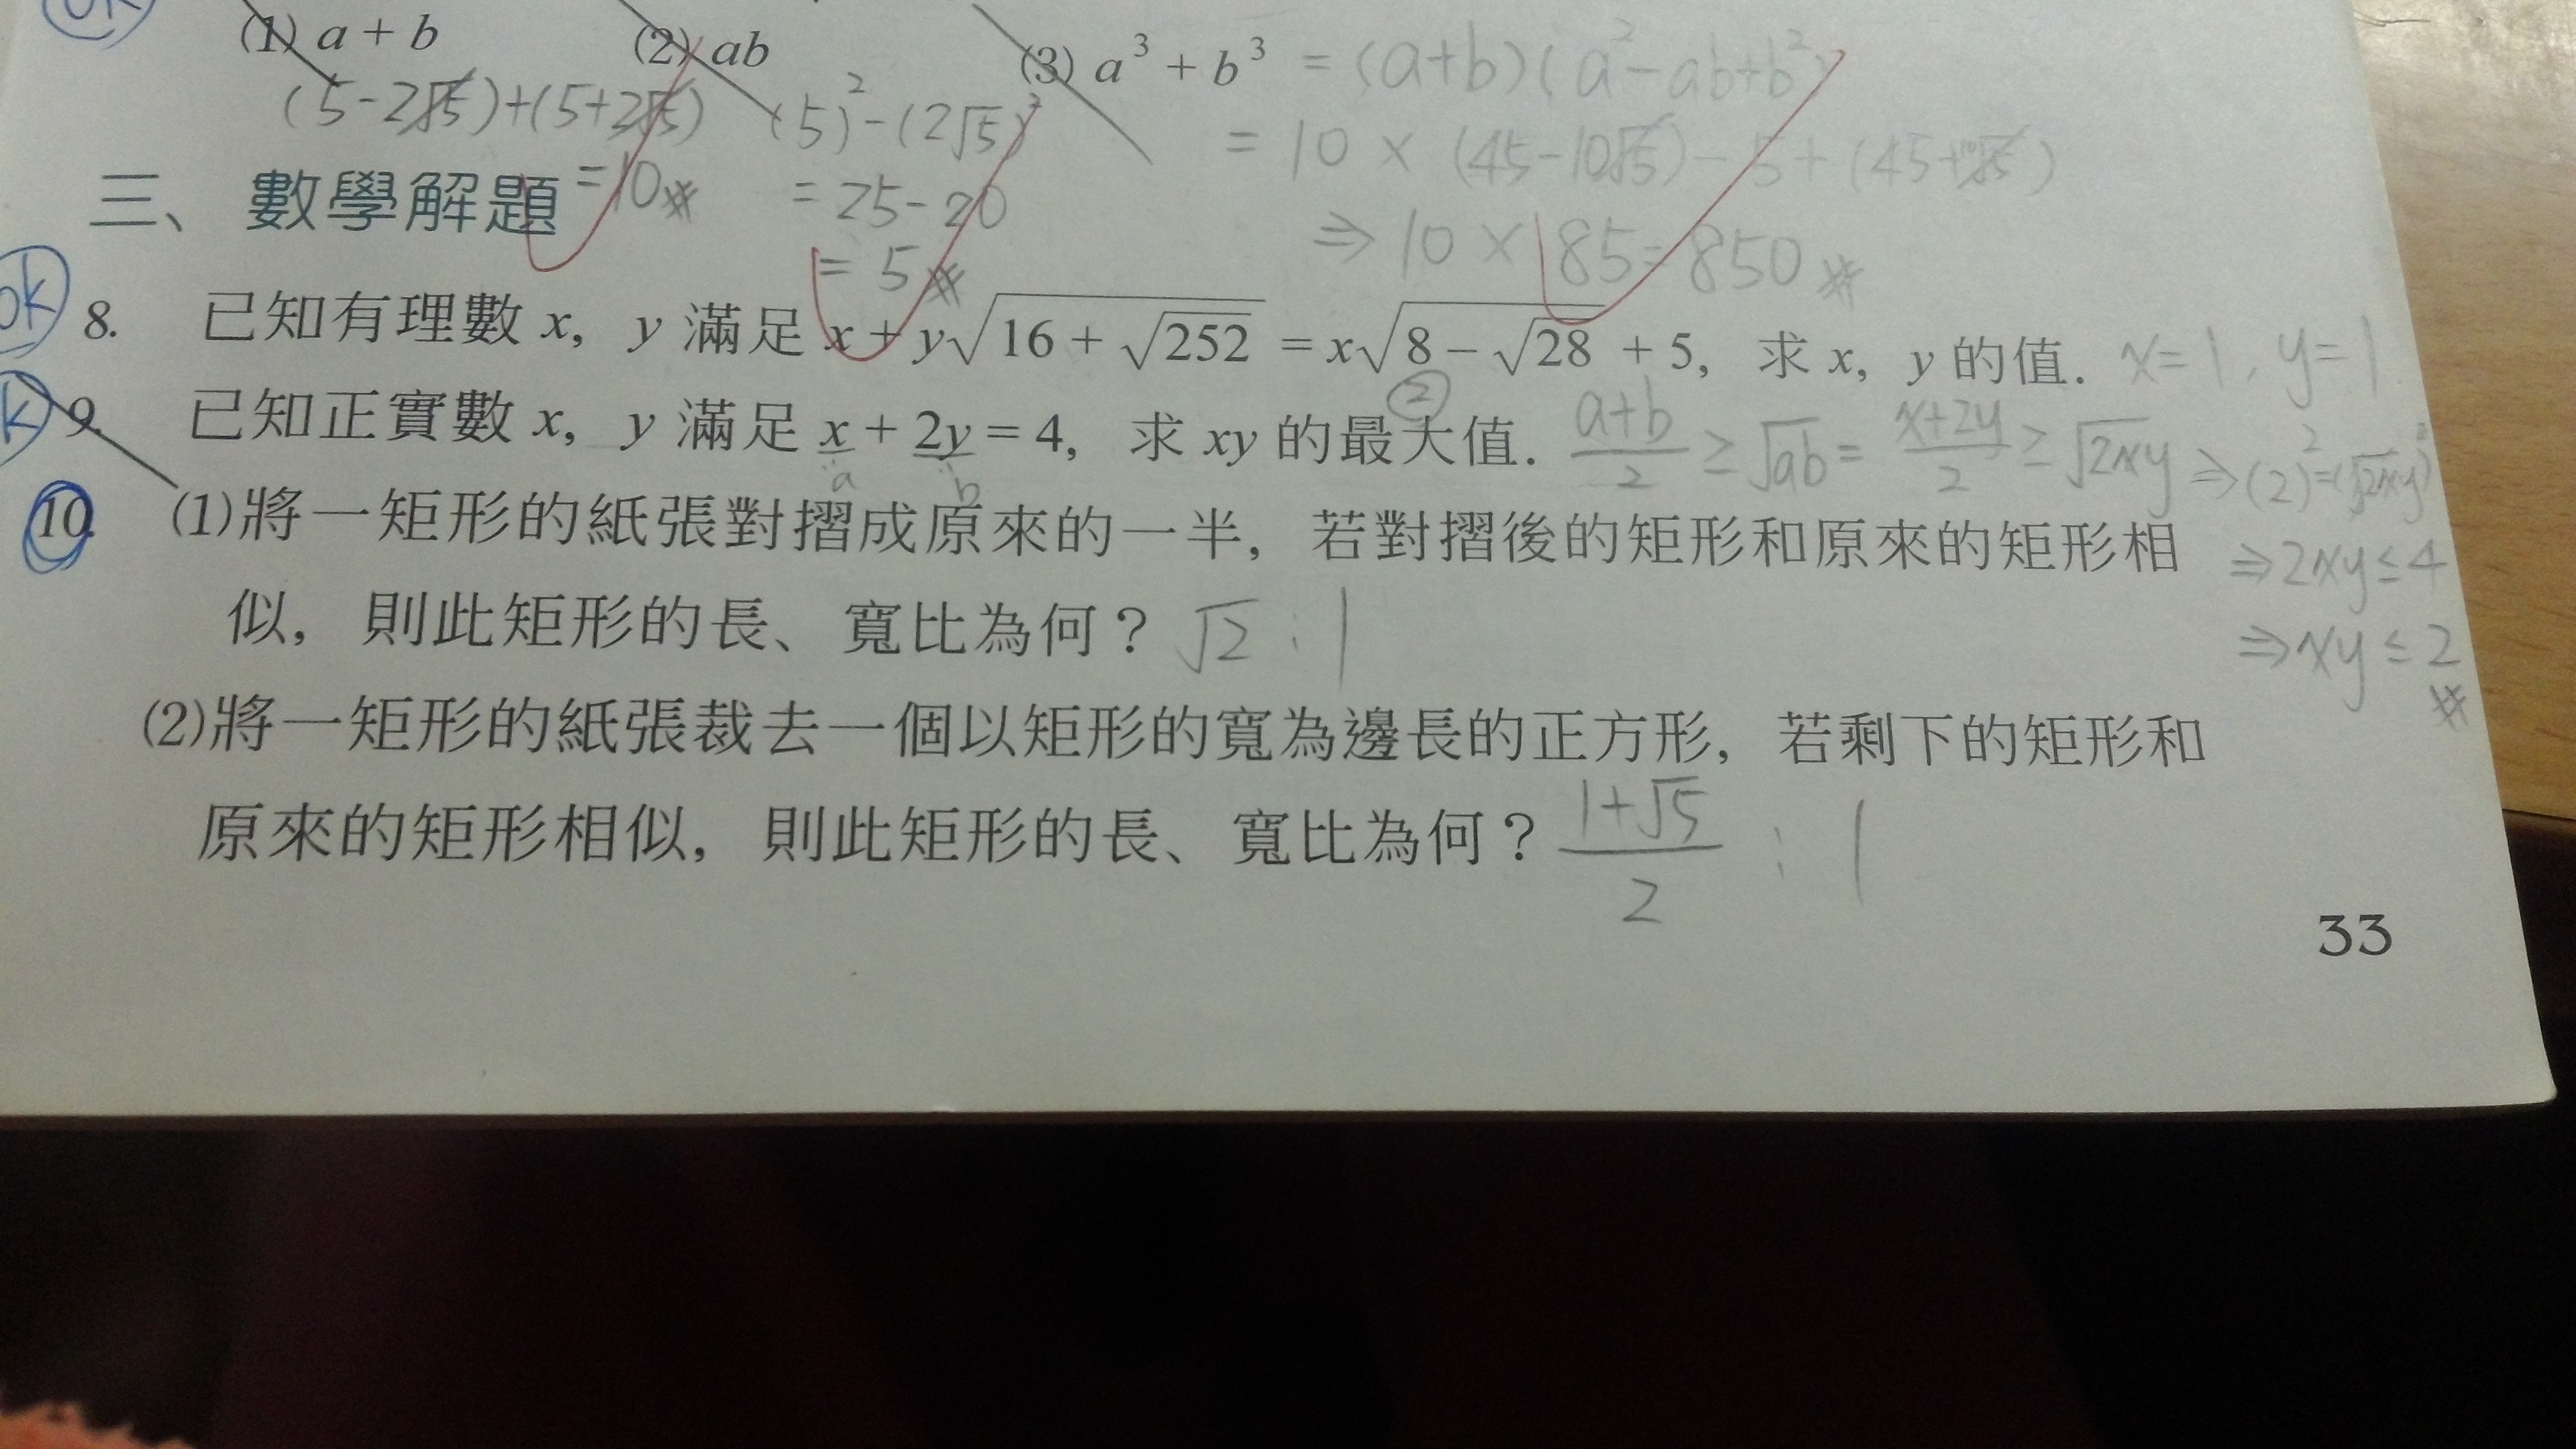 (1) a + b (2) ab (3) a³ + b³ = (a+b)(a²-ab+b²)
(5-2√5)+(5+2√5) (5)²-(2√5)² = 10 × (45-10√5)-5+(45+10√5)
三、數學解題 =10# = 25-20 ⇒ 10 × 85=850 #
= 5#
ok 8. 已知有理數 x, y 滿足 x + y√(16 + √252) = x√(8 – √28) + 5, 求 x, y 的值. x=1, y=1
9. 已知正實數 x, y 滿足 x + 2y = 4, 求 xy 的最大值. ② (a+b)/2 ≥ √ab = (x+2y)/2 ≥ √2xy ⇒ (2)²=(√2xy)²
a b
10. (1)將一矩形的紙張對摺成原來的一半, 若對摺後的矩形和原來的矩形相 ⇒ 2xy ≤ 4
似, 則此矩形的長、寬比為何? √2 : 1 ⇒ xy ≤ 2 #
(2)將一矩形的紙張裁去一個以矩形的寬為邊長的正方形, 若剩下的矩形和
原來的矩形相似, 則此矩形的長、寬比為何? (1+√5)/2 : 1
33